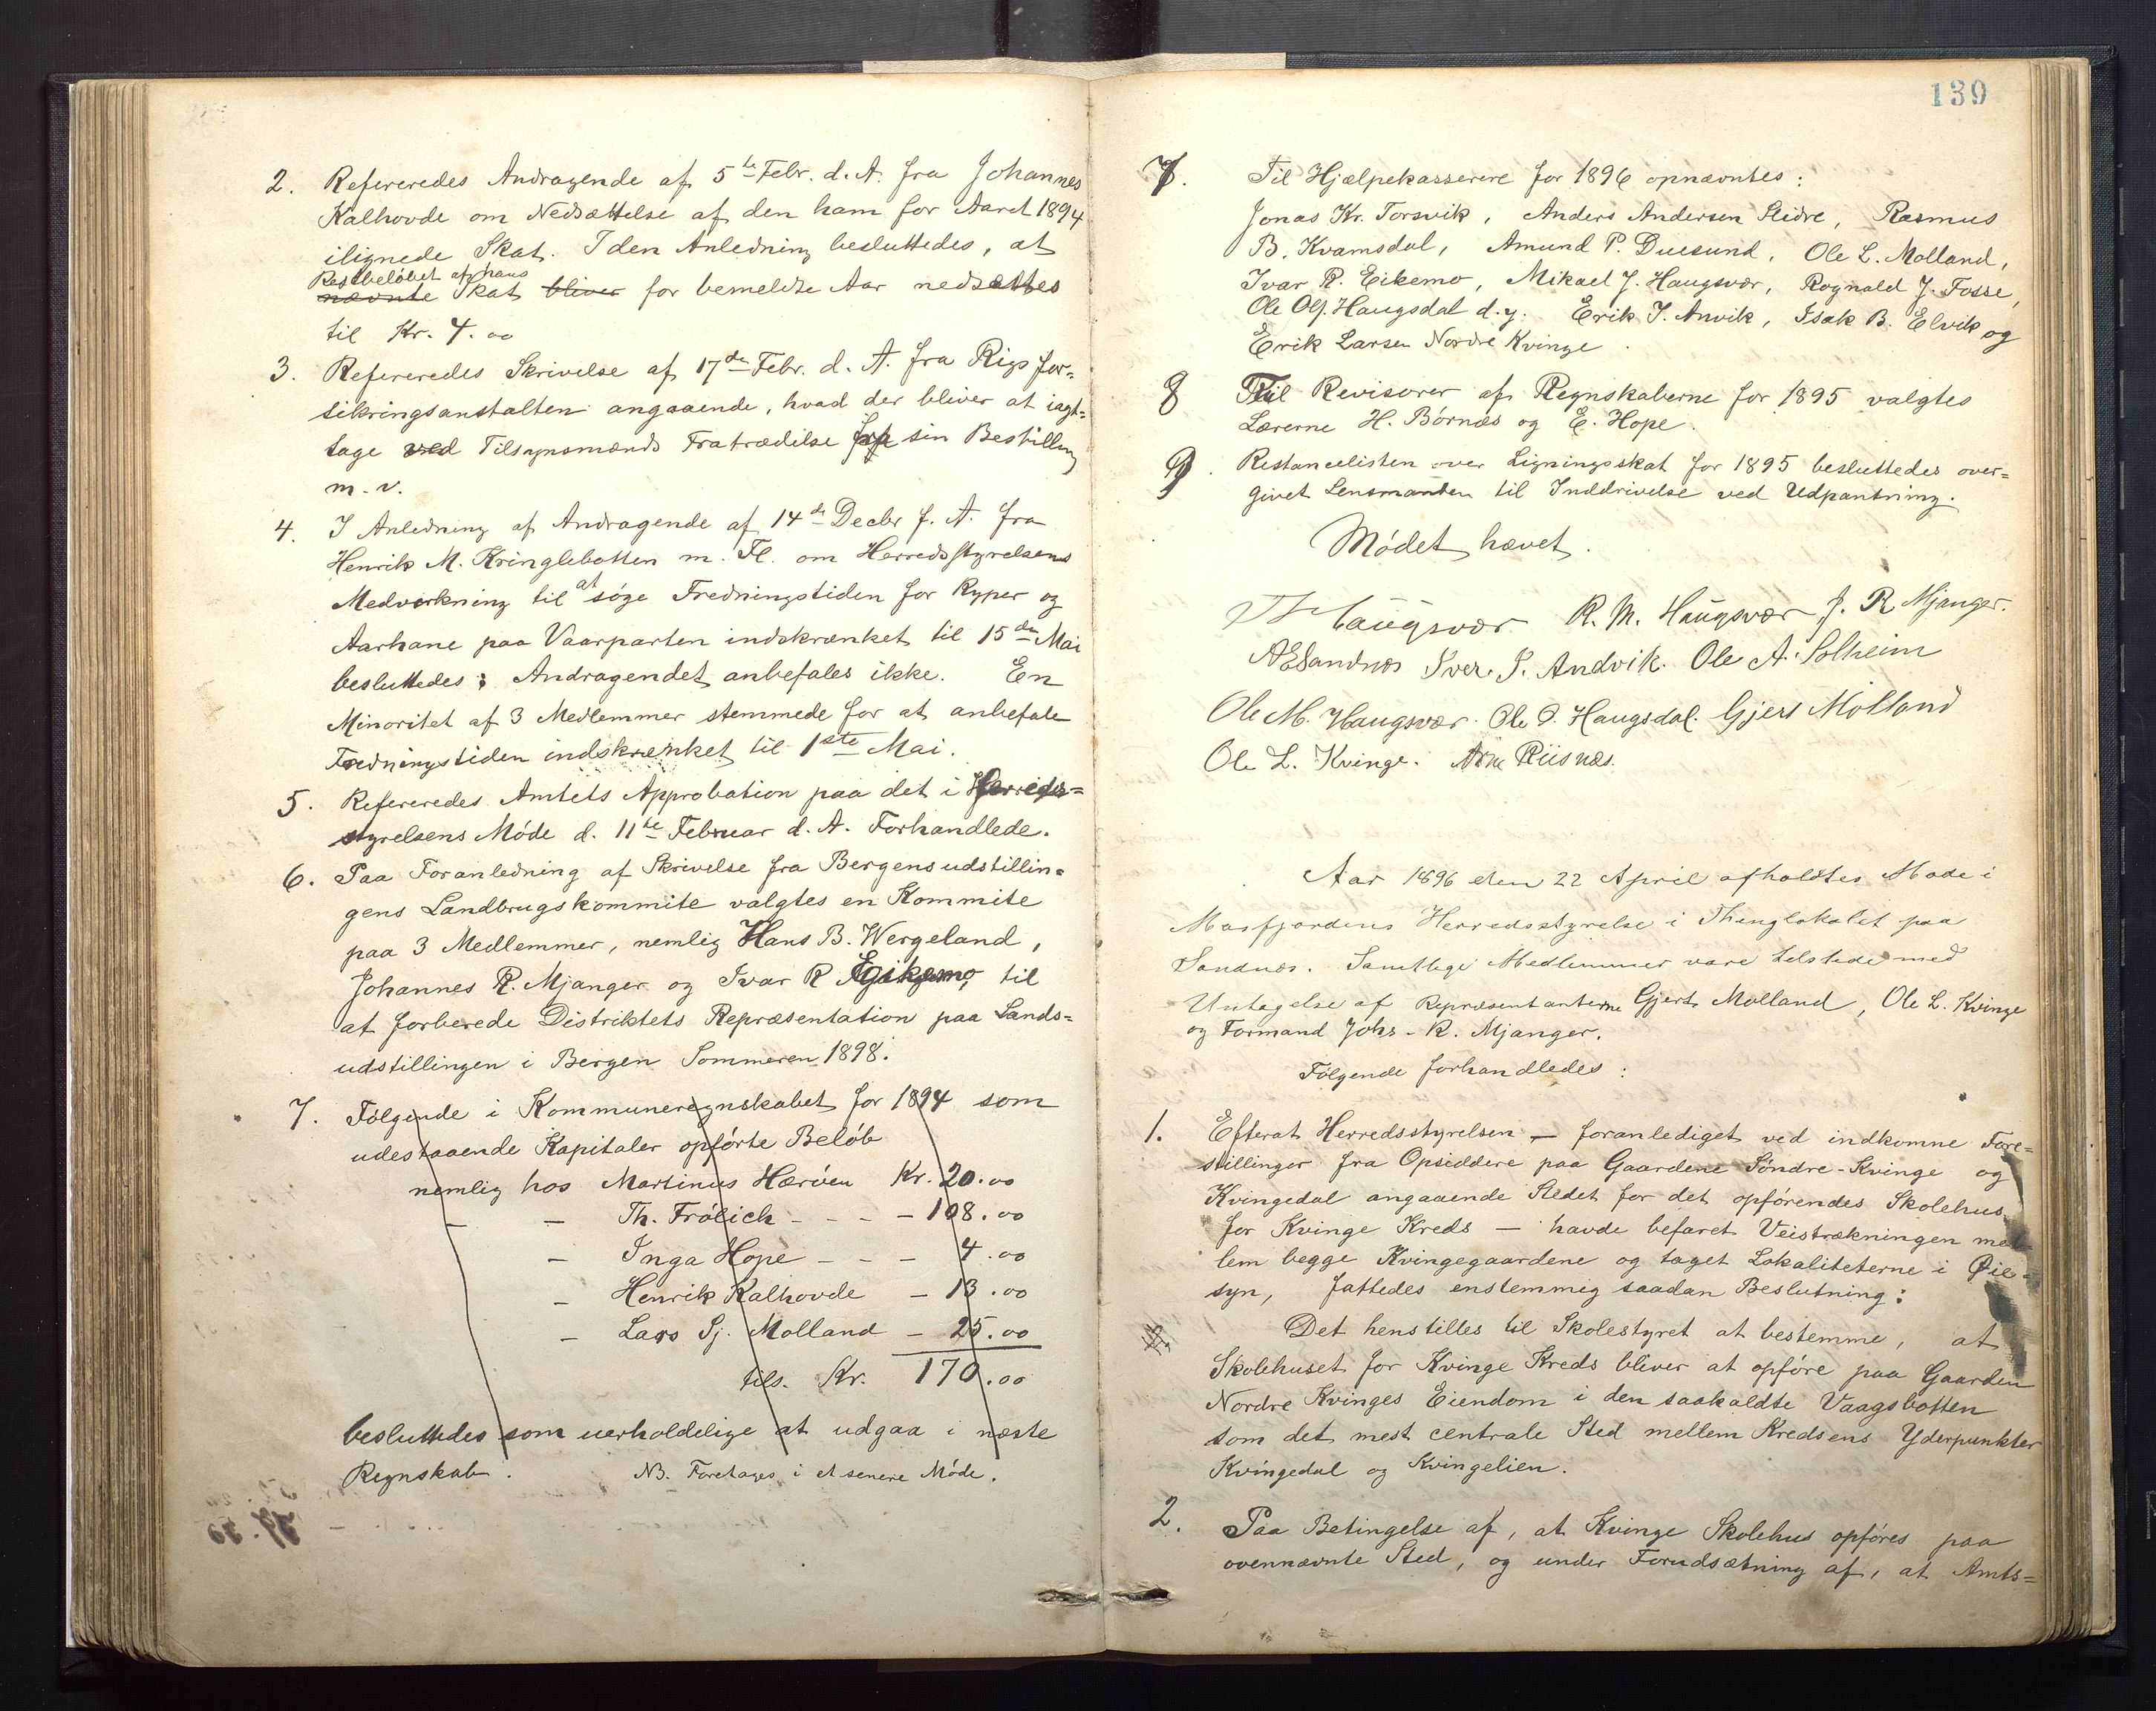 2. Refereredes Andragende af 5te Febr. d. A. fra Johannes
Kalhovde om Nedsættelse af den ham for Aaret 1894
ilignede Skat. I den Anledning besluttedes, at
Restbeløbet af hans
nævnte Skat bliver for bemeldte Aar nedsættes
til Kr. 4.00
3. Refereredes Skrivelse af 17de Febr. d. A. fra Rigsfor=
sikringsanstalten angaaende, hvad der bliver at iagt=
tage ved Tilsynsmænds Fratrædelse fra sin Bestilling
m. v.
4. I Anledning af Andragende af 14de Decbr f. A. fra
Henrik M. Kringlebotten m. Fl. om Herredsstyrelsens
Medvirkning til at søge Fredningstiden for Ryper og
Aarhane paa Vaarparten indskrænket til 15den Mai
besluttedes: Andragendet anbefales ikke. En
Minoritet af 3 Medlemmer stemmede for at anbefale
Fredningstiden indskrænket til 1ste Mai.
5. Refereredes Amtets Approbation paa det i Herreds=
styrelsens Møde d. 11te Februar d. A. Forhandlede.
6. Paa Foranledning af Skrivelse fra Bergensudstillin=
gens Landbrugskommite valgtes en Kommite
paa 3 Medlemmer, nemlig Hans B. Wergeland,
Johannes R. Mjanger og Ivar R Eikemo, til
at forberede Distriktets Repræsentation paa Lands=
udstillingen i Bergen Sommeren 1898.
7. Følgende i Kommuneregnskabet for 1894 som
udestaaende Kapitaler opførte Beløb
nemlig hos Martinus Hærøen Kr. 20.00
— — Th. Frölich - - - - 108.00
— Inga Hope - - - 4.00
— Henrik Kalhovde — 13.00
— Lars Sj. Molland — 25.00
tils. Kr. 170.00
besluttedes som uerholdelige at udgaa i næste
Regnskab. NB. Foretages i et senere Møde.
139
7. Til Hjælpekasserere for 1896 opnævntes:
Jonas Kr. Torsvik, Anders Andersen Sleire, Rasmus
B. Kvamsdal, Amund P. Duesund, Ole L. Molland,
Ivar R. Eikemo, Mikael J. Haugsvær, Rognald J. Fosse,
Ole Olf. Haugsdal d.y. Erik J. Anvik, Isak B. Elvik og
Erik Larsen Nordre Kvinge.
8 Til Revisorer af Regnskaberne for 1895 valgtes
Lærerne H. Börnæs og E. Hope.
9. Restancelisten over Ligningsskat for 1895 besluttedes over=
givet Lensmanden til Inddrivelse ved Udpantning.
Mødet hævet.
Haugsvær R. M. Haugsvær J. R Mjanger.
AESandnæs Iver. J. Andvik. Ole A. Solheim
Ole M. Haugsvær. Ole O. Haugsdal. Gjert Molland
Ole L. Kvinge. Arne Riisnæs.
Aar 1896 den 22 April afholdtes Møde i
Masfjordens Herredsstyrelse i Thinglokalet paa
Sandnæs. Samtlige Medlemmer vare tilstede med
Untagelse af Repræsentanterne Gjert Molland, Ole L. Kvinge
og Formand Johs. R. Mjanger.
Følgende forhandledes:
1. Efterat Herredsstyrelsen — foranlediget ved indkomne Fore=
stillinger fra Opsiddere paa Gaardene Søndre-Kvinge og
Kvingedal angaaende Stedet for det opførendes Skolehus
for Kvinge Kreds — havde befaret Veistrækningen mel=
lem begge Kvingegaardene og taget Lokaliteterne i Øie=
syn, fattedes enstemmig saadan Beslutning:
Det henstilles til Skolestyret at bestemme, at
Skolehuset for Kvinge Kreds bliver at opføre paa Gaarden
Nordre Kvinges Eiendom i den saakaldte Vaagsbotten
som det mest centrale Sted mellem Kredsens Yderpunkter
Kvingedal og Kvingelien.
2. Paa Betingelse af, at Kvinge Skolehus opføres paa
ovennævnte Sted, og under Forudsætning af, at Amts=